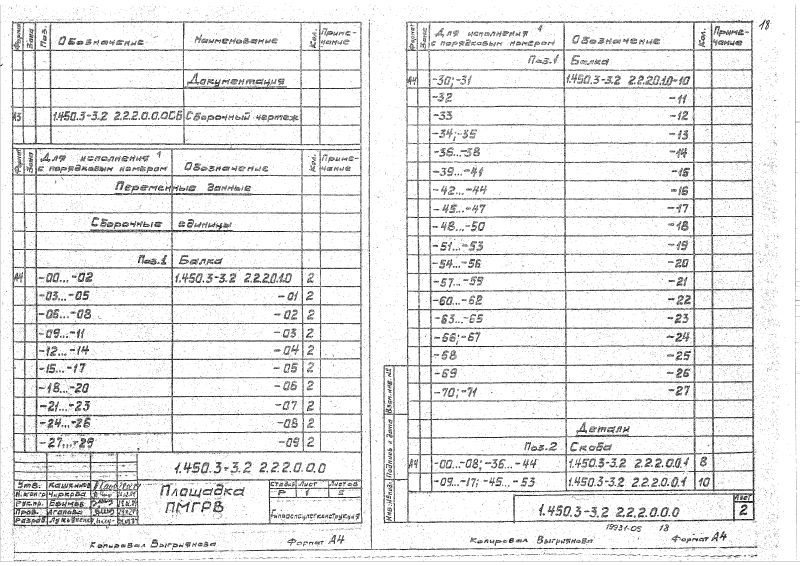 Формат Зона Поз. Обозначение Наименование Кол. Примечание
Документация
А3 1.450.3-3.2 2.2.2.0.0.0СБ Сборочный чертеж
Формат Зона Для исполнения с порядковым номером 1 Обозначение Кол. Примечание
Переменные данные
Сборочные единицы
Поз.1 Балка
А4 -00...-02 1.450.3-3.2 2.2.2.0.1.0 2
-03...-05 -01 2
-06...-08 -02 2
-09...-11 -03 2
-12...-14 -04 2
-15...-17 -05 2
-18...-20 -06 2
-21...-23 -07 2
-24...-26 -08 2
-27...-29 -09 2
1.450.3-3.2 2.2.2.0.0.0
Утв. Кашкина
Н.контр Чиркова
Рук.пр. Ефимов
Пров. Агапова
Разраб.
Площадка
ПМГРВ
Стадия Лист Листов
Р 1 5
Копировал Выгриянова Формат А4
18
Формат Зона Для исполнения с порядковым номером 1 Обозначение Кол. Примечание
Поз.1 Балка
А4 -30;-31 1.450.3-3.2 2.2.2.0.1.0-10
-32 -11
-33 -12
-34;-35 -13
-36...-38 -14
-39...-41 -15
-42...-44 -16
-45...-47 -17
-48...-50 -18
-51...-53 -19
-54...-56 -20
-57...-59 -21
-60...-62 -22
-63...-65 -23
-66;-67 -24
-68 -25
-69 -26
-70;-71 -27
Детали
Поз.2 Скоба
А4 -00...-08;-36...-44 1.450.3-3.2 2.2.2.0.0.1 8
-09...-17;-45...-53 1.450.3-3.2 2.2.2.0.0.1 10
Инв.№подл. Подпись и дата Взам.инв.№
1.450.3-3.2 2.2.2.0.0.0
Лист
2
19931-05 18
Копировал Выгриянова Формат А4